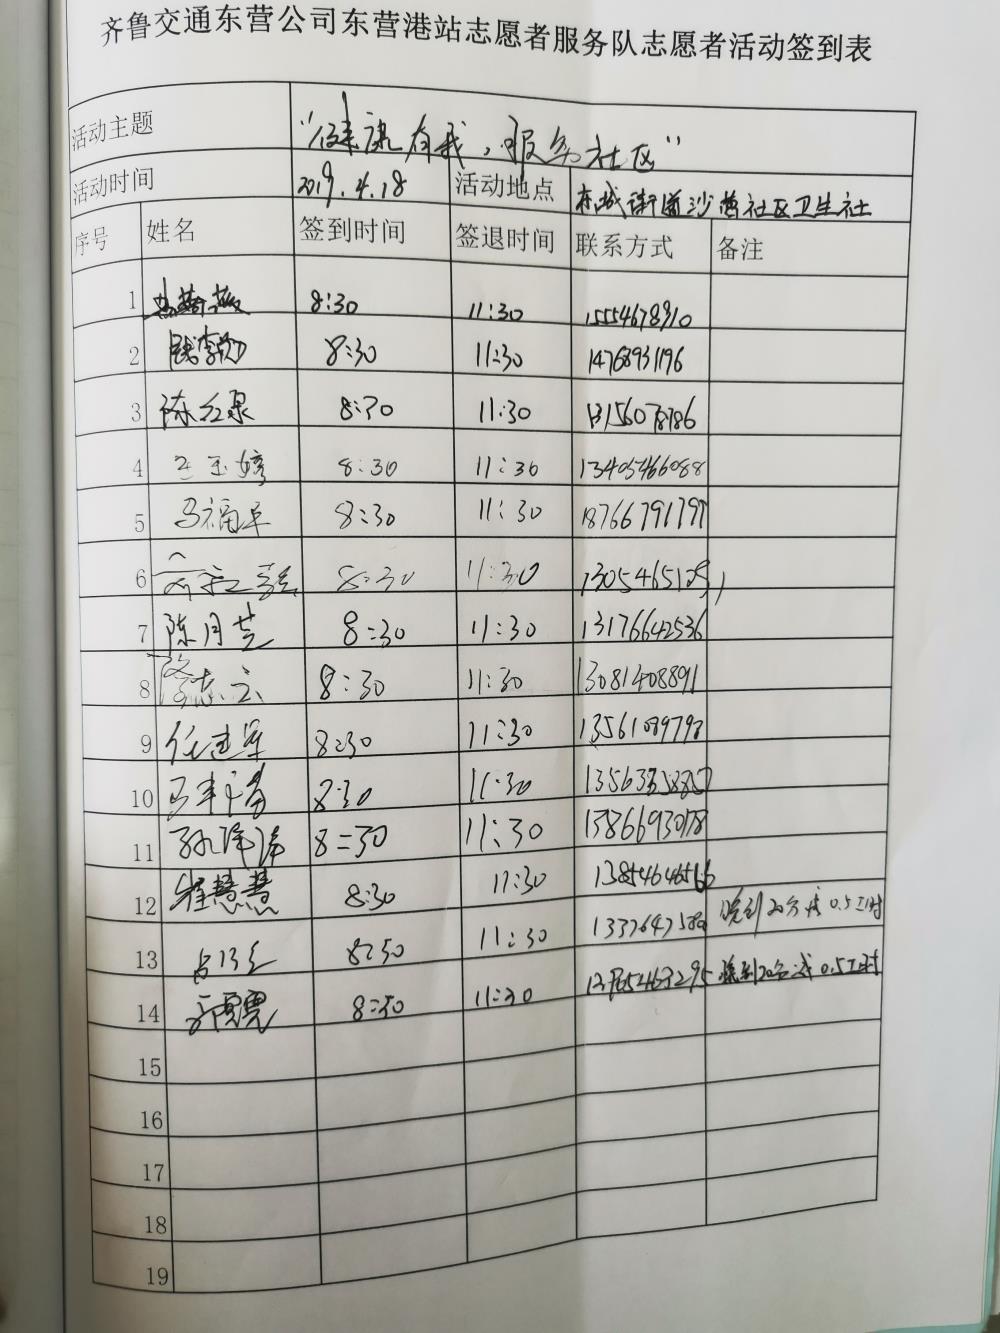 齐鲁交通东营公司东营港站志愿者服务队志愿者活动签到表
活动主题 "健康有我，服务社区"
活动时间 2019.4.18 活动地点 东城街道沙营社区卫生社
序号 姓名 签到时间 签退时间 联系方式 备注
1 8:30 11:30 15554678910
2 8:30 11:30 14768931196
3 陈红泉 8:30 11:30 13156078786
4 王玉婷 8:30 11:30 13405466088
5 马福卓 8:30 11:30 18766791797
6 8:30 11:30
7 陈月芝 8:30 11:30 13176642536
8 志云 8:30 11:30 13081408891
9 任建军 8:30 11:30
10 8:30 11:30
11 孙泽泽 8=30 11:30
12 崔慧慧 8:30 11:30
13 8:50 11:30 晚到20分 0.5工时
14 8:50 11:30 晚到20分减0.5工时
15
16
17
18
19